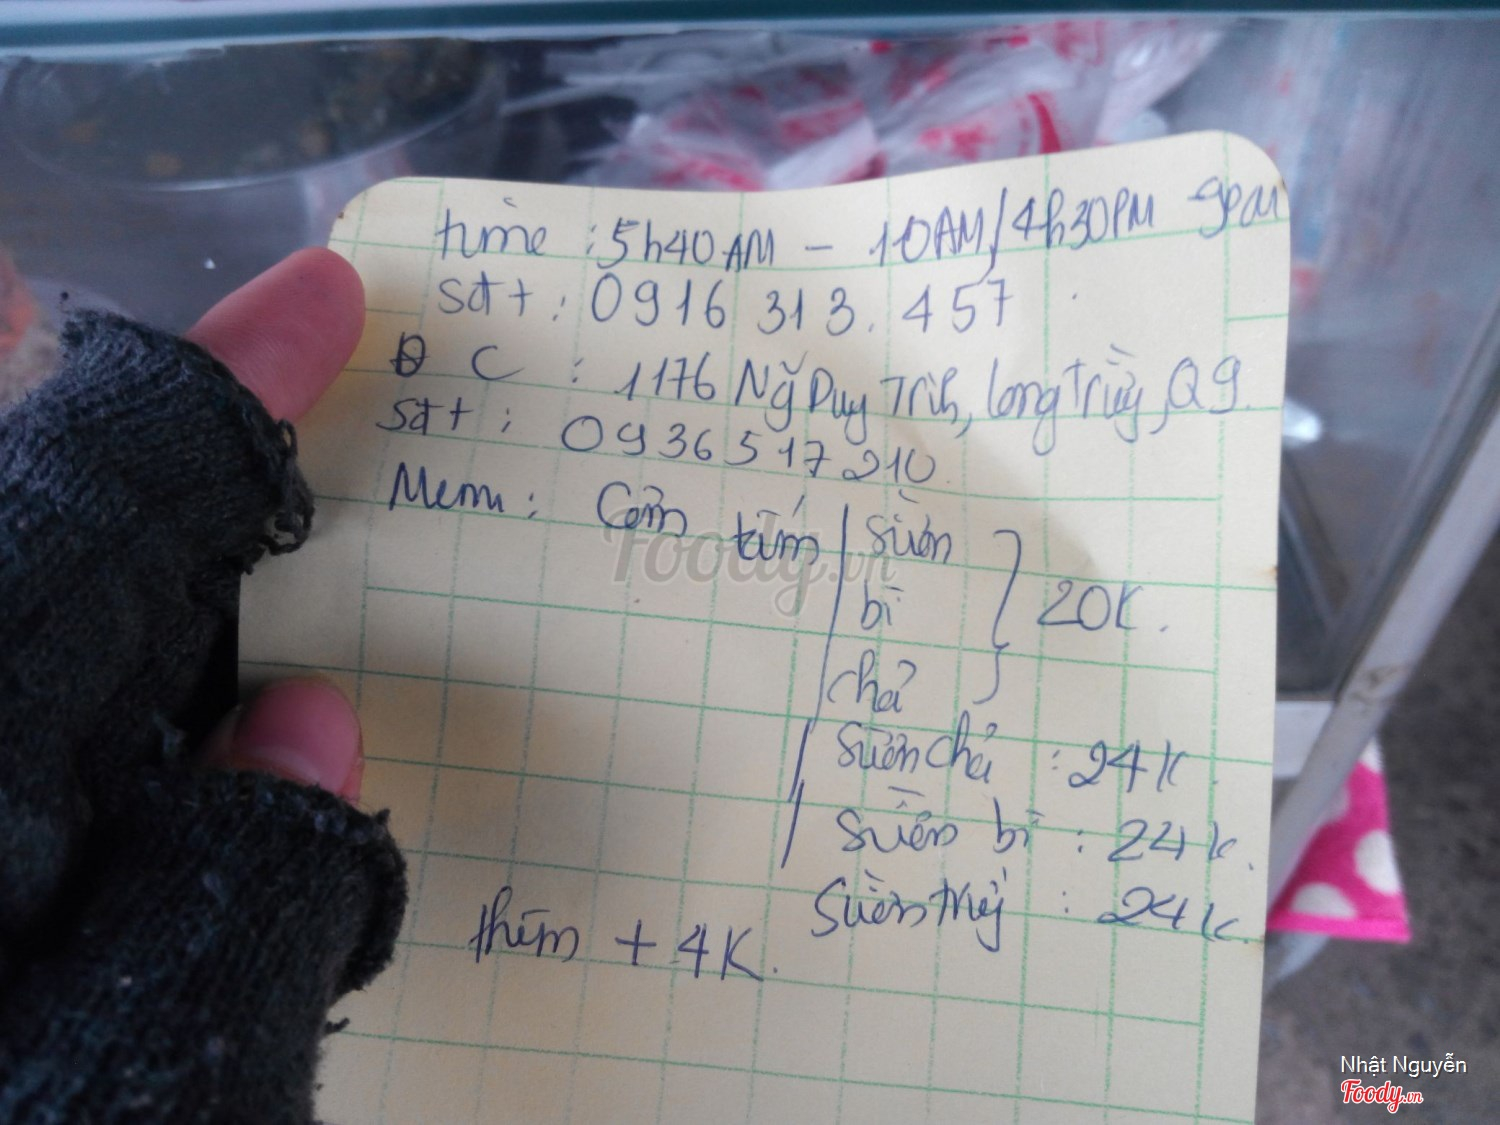 time : 5h40AM - 10AM/4h30PM 9PM
Sđt : 0916 313.457
ĐC : 1176 Ng Duy Trinh, Long Trường, Q9.
Sđt : 0936517210.
Menu : Cơm tấm
Sườn
bì
chả
20K.
Sườn chả : 24K.
Sườn bì : 24K.
Sườn trứng : 24K.
thêm + 4K.
Foody.vn
Nhật Nguyễn
Foody.vn